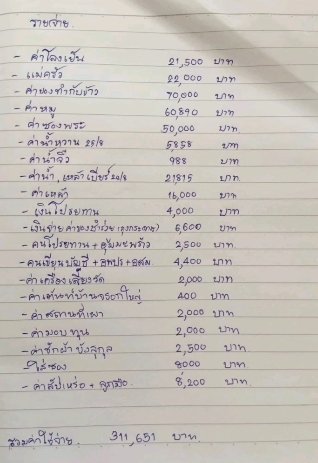 รายจ่าย
- ค่าโลงเย็น 21,500 บาท
- แม่ครัว 22,000 บาท
- ค่าของทำกับข้าว 70,000 บาท
- ค่าหมู 60,890 บาท
- ค่าซองพระ 50,000 บาท
- ค่าน้ำหวาน 25/8 5,858 บาท
- ค่าน้ำจิ้ว 988 บาท
- ค่าน้ำ, เหล้า, เบียร์ 20/8 21,815 บาท
- ค่าเหล้า 16,000 บาท
- เงินโปรยทาน 4,000 บาท
- เงินจ่ายค่าของชำร่วย 6,600 บาท
- คนโปรยทาน + อุ้มมะพร้าว 2,500 บาท
- คนเขียนบัญชี + อพปร + อสม 4,400 บาท
- ค่าเครื่องเสียงวัด 2,000 บาท
- ค่าเต้นท์บ้านจรอกใหญ่ 400 บาท
- ค่าสถานที่เผา 2,000 บาท
- ค่ามอบทุน 2,000 บาท
- ค่าชักผ้าบังสุกุล 2,500 บาท
- ใส่ซอง 8000 บาท
- ค่าสัปเหร่อ + ลูกมือ 8,200 บาท
รวมค่าใช้จ่าย 311,651 บาท